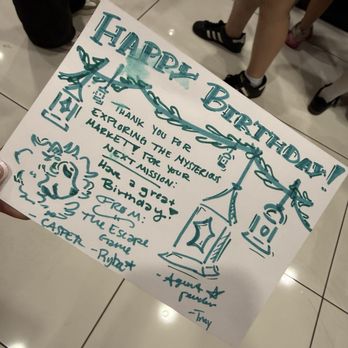 HAPPY BIRTHDAY!
THANK YOU FOR
EXPLORING THE MYSTERIOUS
MARKET! FOR YOUR
NEXT MISSION:
Have a great
Birthday
FROM:
The Escape
Game
- CASPER
- Agent
- Trey